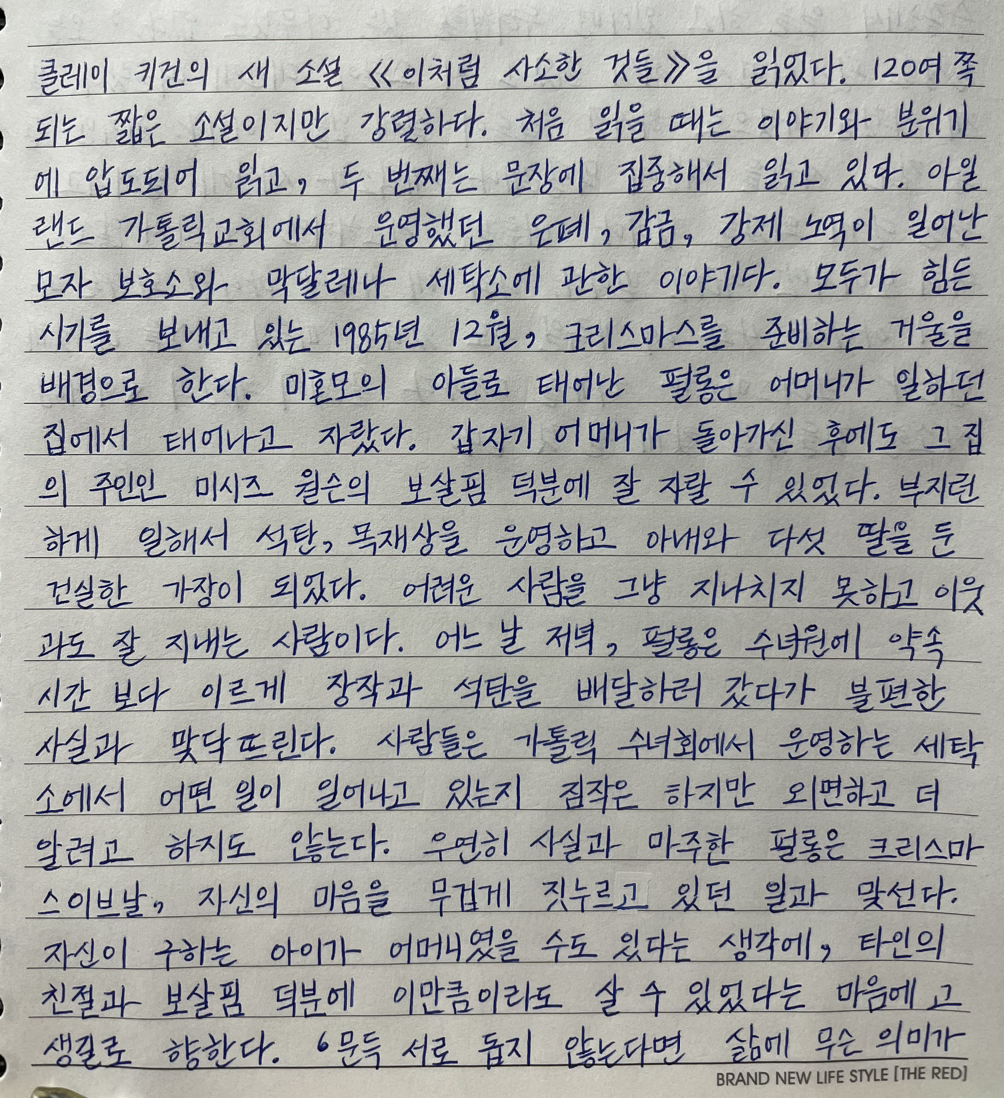 클레이 키건의 새 소설 《이처럼 사소한 것들》을 읽었다. 120여 쪽
되는 짧은 소설이지만 강렬하다. 처음 읽을 때는 이야기와 분위기
에 압도되어 읽고, 두 번째는 문장에 집중해서 읽고 있다. 아일
랜드 가톨릭교회에서 운영했던 은폐, 감금, 강제 노역이 일어난
모자 보호소와 막달레나 세탁소에 관한 이야기다. 모두가 힘든
시기를 보내고 있는 1985년 12월, 크리스마스를 준비하는 겨울을
배경으로 한다. 미혼모의 아들로 태어난 펄롱은 어머니가 일하던
집에서 태어나고 자랐다. 갑자기 어머니가 돌아가신 후에도 그 집
의 주인인 미시즈 윌슨의 보살핌 덕분에 잘 자랄 수 있었다. 부지런
하게 일해서 석탄, 목재상을 운영하고 아내와 다섯 딸을 둔
건실한 가장이 되었다. 어려운 사람을 그냥 지나치지 못하고 이웃
과도 잘 지내는 사람이다. 어느 날 저녁, 펄롱은 수녀원에 약속
시간 보다 이르게 장작과 석탄을 배달하러 갔다가 불편한
사실과 맞닥뜨린다. 사람들은 가톨릭 수녀회에서 운영하는 세탁
소에서 어떤 일이 일어나고 있는지 짐작은 하지만 외면하고 더
알려고 하지도 않는다. 우연히 사실과 마주한 펄롱은 크리스마
스이브날, 자신의 마음을 무겁게 짓누르고 있던 일과 맞선다.
자신이 구하는 아이가 어머니였을 수도 있다는 생각에, 타인의
친절과 보살핌 덕분에 이만큼이라도 살 수 있었다는 마음에 고
생길로 향한다. ‘문득 서로 돕지 않는다면 삶에 무슨 의미가
BRAND NEW LIFE STYLE [THE RED]